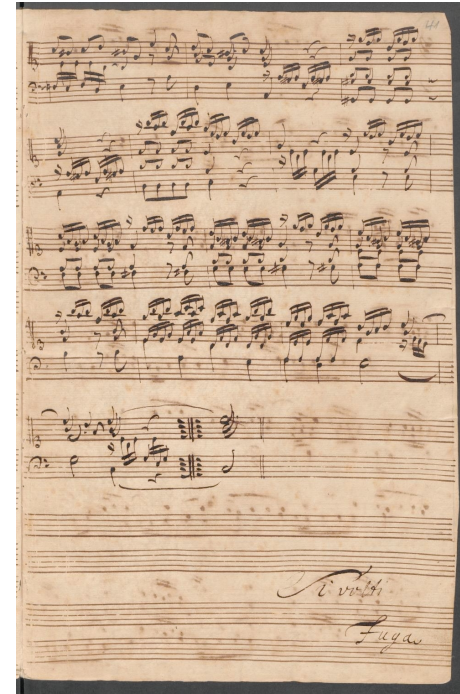 41
Si volti
Fuga